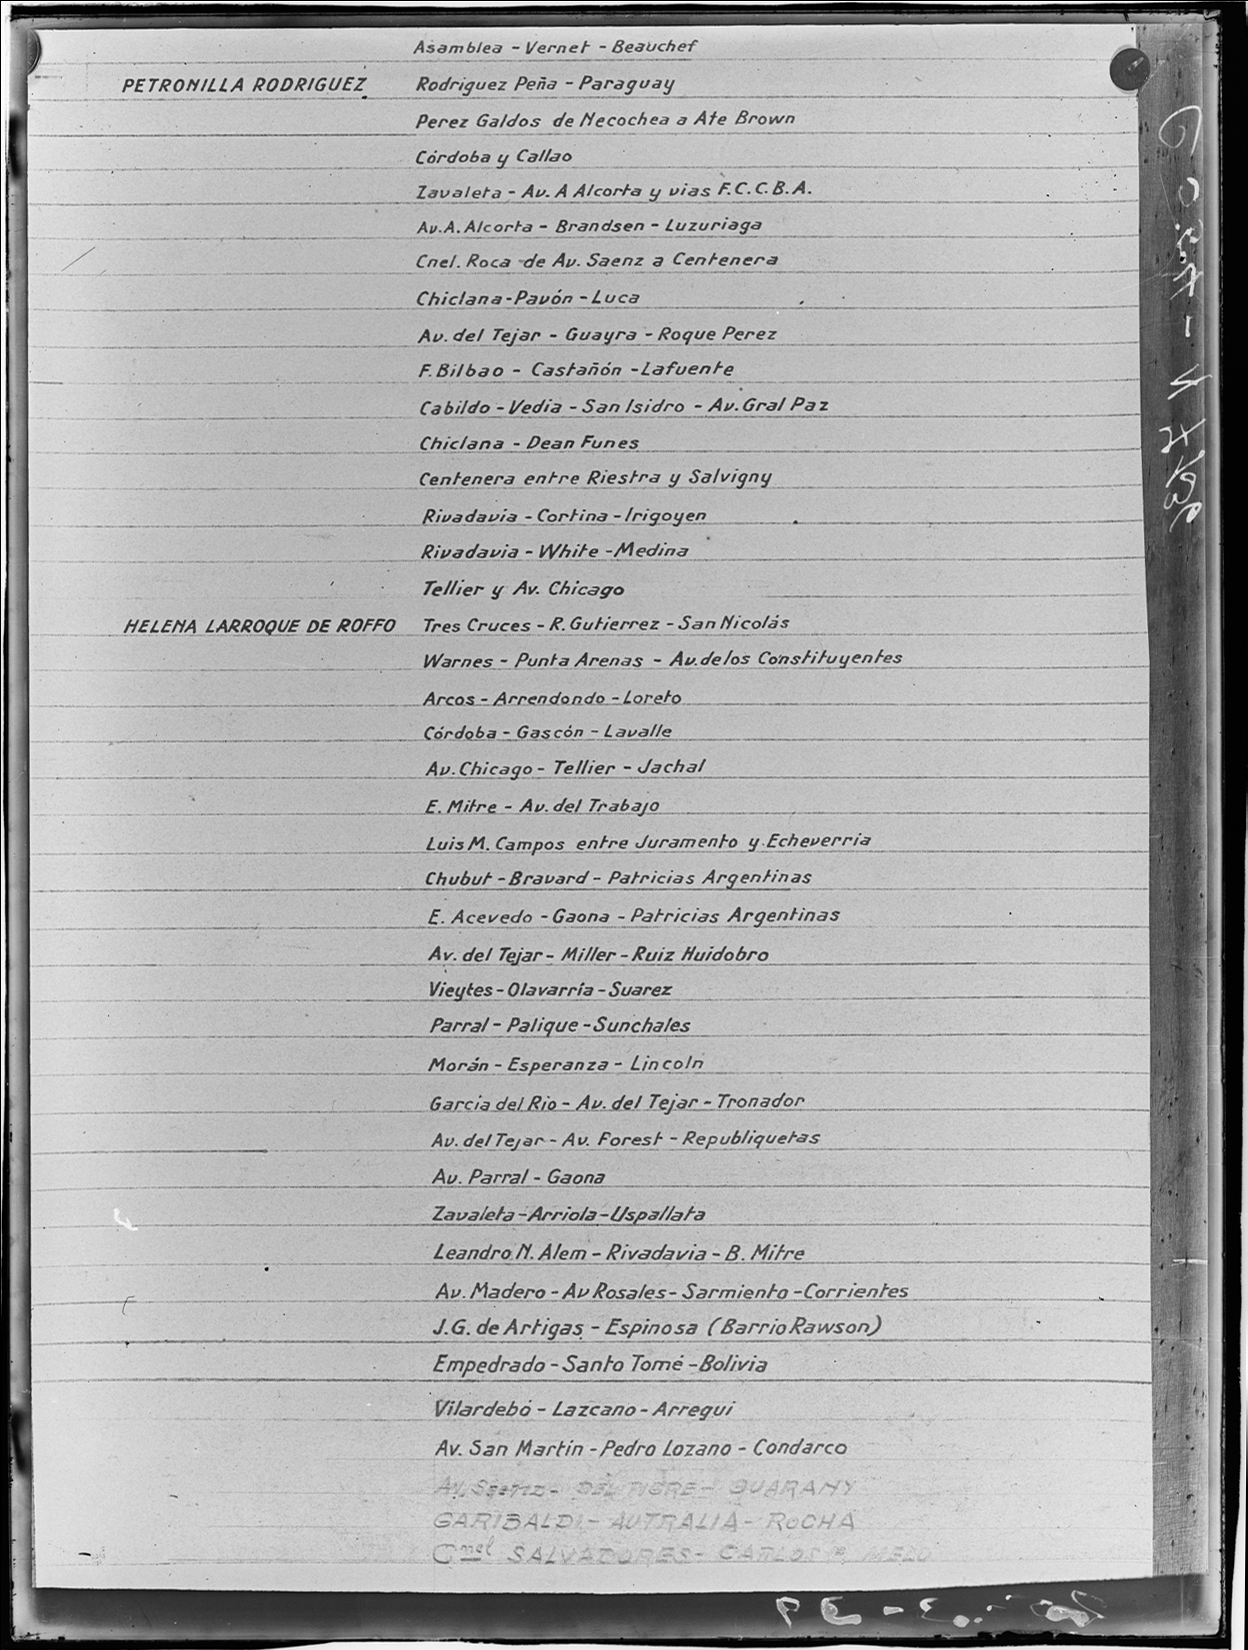 Asamblea - Vernet - Beauchef
PETRONILLA RODRIGUEZ Rodriguez Peña - Paraguay
Perez Galdos de Necochea a Ate Brown
Córdoba y Callao
Zavaleta - Av. A Alcorta y vias F.C.C.B.A.
Av. A. Alcorta - Brandsen - Luzuriaga
Cnel. Roca de Av. Saenz a Centenera
Chiclana - Pavón - Luca
Av. del Tejar - Guayra - Roque Perez
F. Bilbao - Castañón - Lafuente
Cabildo - Vedia - San Isidro - Av. Gral Paz
Chiclana - Dean Funes
Centenera entre Riestra y Salvigny
Rivadavia - Cortina - Irigoyen
Rivadavia - White - Medina
Tellier y Av. Chicago
HELENA LARROQUE DE ROFFO Tres Cruces - R. Gutierrez - San Nicolás
Warnes - Punta Arenas - Av. de los Constituyentes
Arcos - Arrendondo - Loreto
Córdoba - Gascón - Lavalle
Av. Chicago - Tellier - Jachal
E. Mitre - Av. del Trabajo
Luis M. Campos entre Juramento y Echeverria
Chubut - Bravard - Patricias Argentinas
E. Acevedo - Gaona - Patricias Argentinas
Av. del Tejar - Miller - Ruiz Huidobro
Vieytes - Olavarría - Suarez
Parral - Palique - Sunchales
Morán - Esperanza - Lincoln
Garcia del Rio - Av. del Tejar - Tronador
Av. del Tejar - Av. Forest - Republiquetas
Av. Parral - Gaona
Zavaleta - Arriola - Uspallata
Leandro N. Alem - Rivadavia - B. Mitre
Av. Madero - Av Rosales - Sarmiento - Corrientes
J.G. de Artigas - Espinosa (Barrio Rawson)
Empedrado - Santo Tomé - Bolivia
Vilardebó - Lazcano - Arregui
Av. San Martín - Pedro Lozano - Condarco
Av. Saenz - DEL TIGRE - GUARANY
GARIBALDI - AUTRALIA - ROCHA
Cnel SALVADORES - CARLOS F. MELO